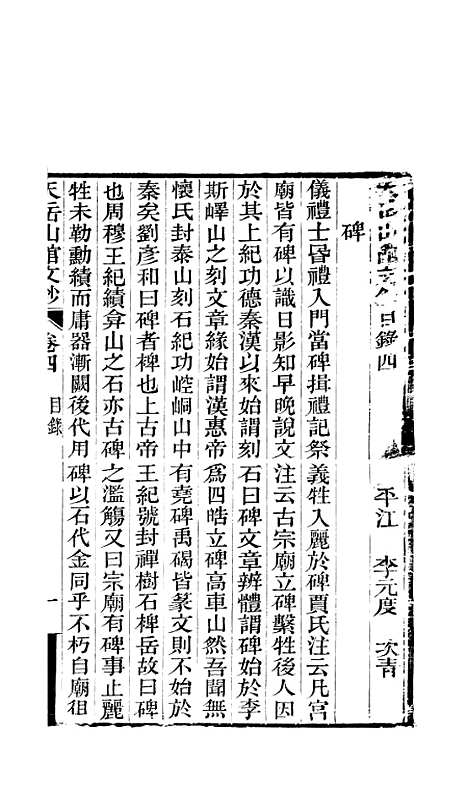 天岳山館文鈔目錄四
平江 李元度 次青
碑
儀禮士昏禮入門當碑揖禮記祭義牲入麗於碑賈氏注云凡宮
廟皆有碑以識日影知早晚說文注云古宗廟立碑繫牲後人因
於其上紀功德秦漢以來始謂刻石曰碑文章辨體謂碑始於李
斯嶧山之刻文章緣始謂漢惠帝爲四皓立碑高車山然吾聞無
懷氏封泰山刻石紀功崆峒山中有堯碑禹碣皆篆文則不始於
秦矣劉彥和曰碑者椑也上古帝王紀號封禪樹石椑岳故曰碑
也周穆王紀績弇山之石亦古碑之濫觴又曰宗廟有碑事止麗
牲未勒勳績而庸器漸闕後代用碑以石代金同乎不朽自廟徂
天岳山館文鈔 卷四 目錄 一